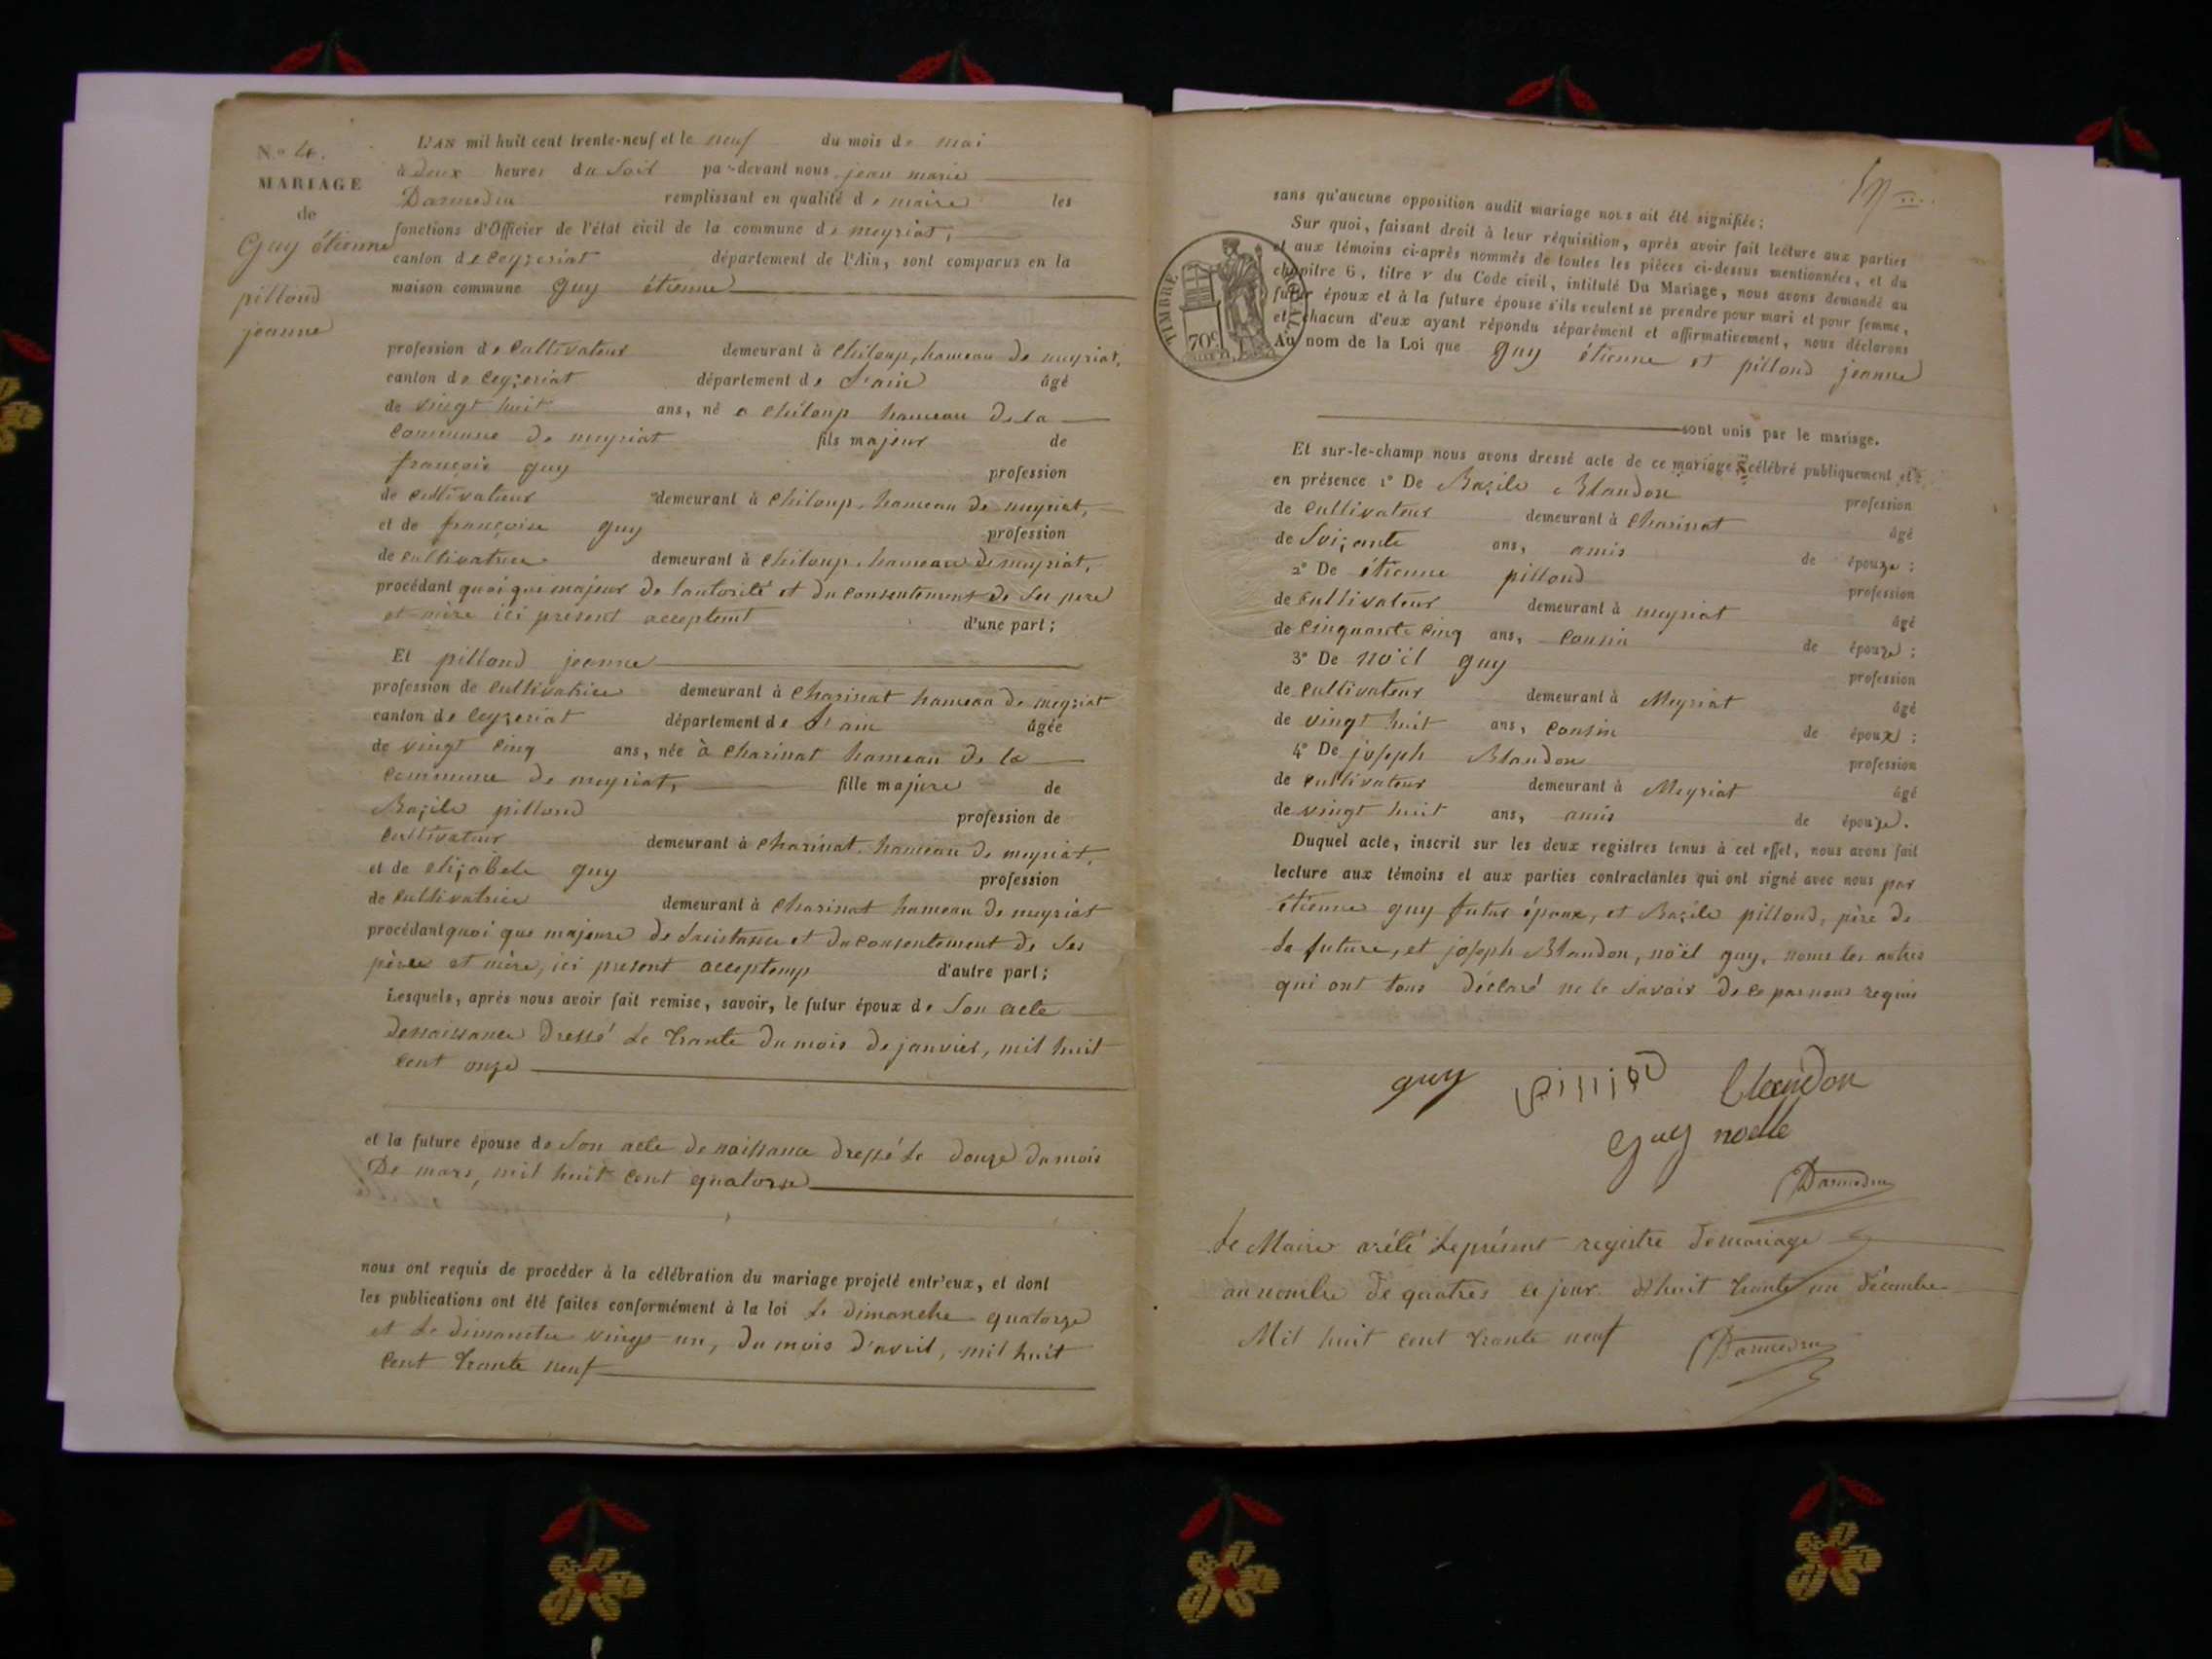 N.º 4.
MARIAGE
de
Guy étienne
pilloud
jeanne
L'AN mil huit cent trente-neuf et le neuf du mois de mai
à deux heures du Soir par-devant nous jean marie
Darmedru remplissant en qualité de maire les
fonctions d'Officier de l'état civil de la commune de meyriat,
canton de Ceyzeriat département de l'Ain, sont comparus en la
maison commune Guy étienne
profession de Cultivateur demeurant à Chiloup, hameau de meyriat,
canton de Ceyzeriat département de L'ain âgé
de vingt huit ans, né a Chiloup hameau de la
Commune de meyriat fils majeur de
françois guy profession
de cultivateur demeurant à Chiloup, hameau de meyriat,
et de françoise guy profession
de cultivatrice demeurant à Chiloup, hameau de meyriat,
procédant quoi que majeur de l'autorité et du consentement de Ses pere
et mère ici présent acceptant d'une part;
Et pilloud jeanne
profession de Cultivatrice demeurant à Charinat hameau de meyriat
canton de Ceyzeriat département de L'ain âgée
de vingt Cinq ans, née à Charinat hameau de la
Commune de meyriat, fille majeure de
Bazile pilloud profession de
Cultivateur demeurant à Charinat, hameau de meyriat,
et de elizabele guy profession
de Cultivatrice demeurant à Charinat hameau de meyriat
procédant quoi que majeure de Lasistance et du consentement de Ses
père et mère, ici present d'autre part;
Lesquels, après nous avoir fait remise, savoir, le futur époux de Son acte
de naissance Dressé Le trante du mois de janvier, mil huit
Cent onze
et la future épouse de Son acte de naissance dressé Le douze du mois
De mars, mil huit Cent quatorze
nous ont requis de procéder à la célébration du mariage projeté entr'eux, et dont
les publications ont été faites conformément à la loi Le dimanche quatorze
et Le dimanche vingt-un, du mois d'avril, mil huit
Cent trante neuf
sans qu'aucune opposition audit mariage nous ait été signifiée;
Sur quoi, faisant droit à leur réquisition, après avoir fait lecture aux parties
et aux témoins ci-après nommés de toutes les pièces ci-dessus mentionnées, et du
chapitre 6, titre v du Code civil, intitulé Du Mariage, nous avons demandé au
futur époux et à la future épouse s'ils veulent se prendre pour mari et pour femme,
et chacun d'eux ayant répondu séparément et affirmativement, nous déclarons
Au nom de la Loi que guy étienne et pilloud jeanne
TIMBRE ROYAL
70c
sont unis par le mariage.
Et sur-le-champ nous avons dressé acte de ce mariage célébré publiquement et
en présence 1º De Bazile Blandon profession
de Cultivateur demeurant à Charinat âgé
de Soizante ans, amis de épouze;
2º De étienne pilloud profession
de Cultivateur demeurant à meyriat âgé
de Cinquante Cinq ans, Cousin de épouze;
3º De noël guy profession
de Cultivateur demeurant à Meyriat âgé
de vingt huit ans, Cousin de époux;
4º De joseph Blandon profession
de Cultivateur demeurant à Meyriat âgé
de vingt huit ans, amis de épouze.
Duquel acte, inscrit sur les deux registres tenus à cet effet, nous avons fait
lecture aux témoins et aux parties contractantes qui ont signé avec nous par
étienne guy futur époux, et Bazile pilloud, père de
La future, et joseph Blandon, noël guy, les autres
qui ont tous déclaré ne le Savoir de ce par nous requis
guy pilliod Blandon
guy noelle
Darmedru
Le Maire arété Le présent registre de mariage
au nombre de quatres ce jour d'huit trante un décembre
Mil huit cent trante neuf Darmedru